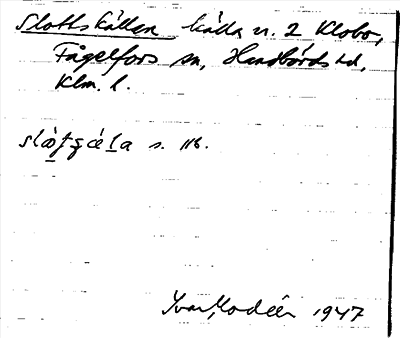 Slottskällan källa n. 2 Klobo,
Fågelfors sn, Handbörds hd,
Klm. l.
slòtʂçǽla s. 116.
Ivar Modéer 1947